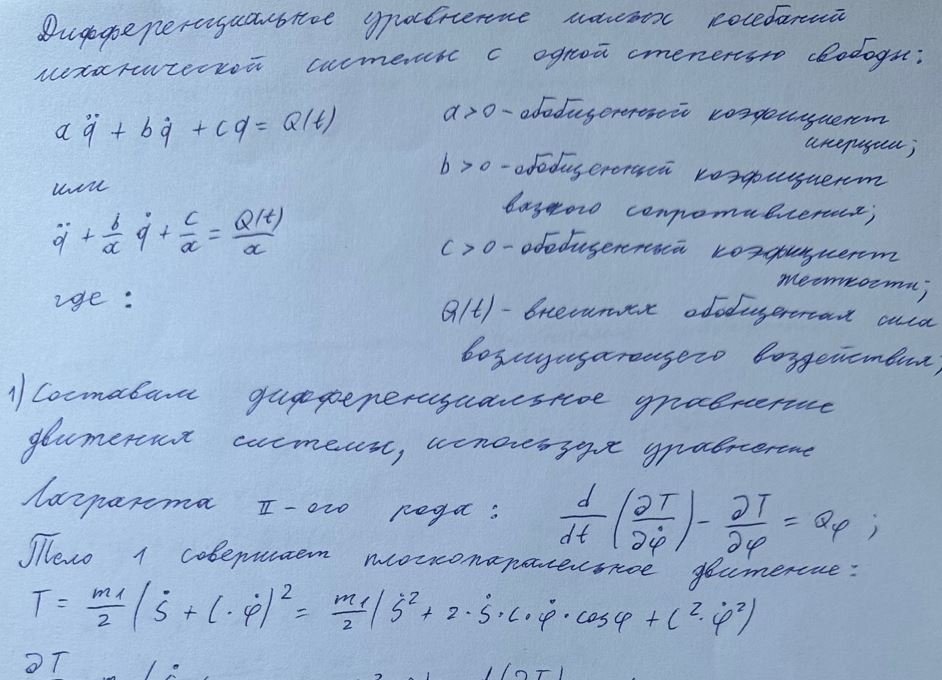 Дифференциальное уравнение малых колебаний
механической системы с одной степенью свободы:
a q̈ + b q̇ + c q = Q(t)
a > 0 - обобщенный коэфициент
инерции;
или
b > 0 - обобщенный коэфициент
вязкого сопротивления;
q̈ + b/a q̇ + c/a = Q(t)/a
c > 0 - обобщенный коэфициент
жесткости;
где :
Q(t) - внешняя обобщенная сила
возмущающего воздействия;
1) Составим дифференциальное уравнение
движения системы, используя уравнение
Лагранжа II-ого рода : d/dt (∂T/∂φ̇) - ∂T/∂φ = Qφ ;
Тело 1 совершает плоскопаралельное движение:
T = m1/2 (ṡ + l · φ̇)² = m1/2 (ṡ² + 2 · ṡ · l · φ̇ · cosφ + l² · φ̇²)
∂T